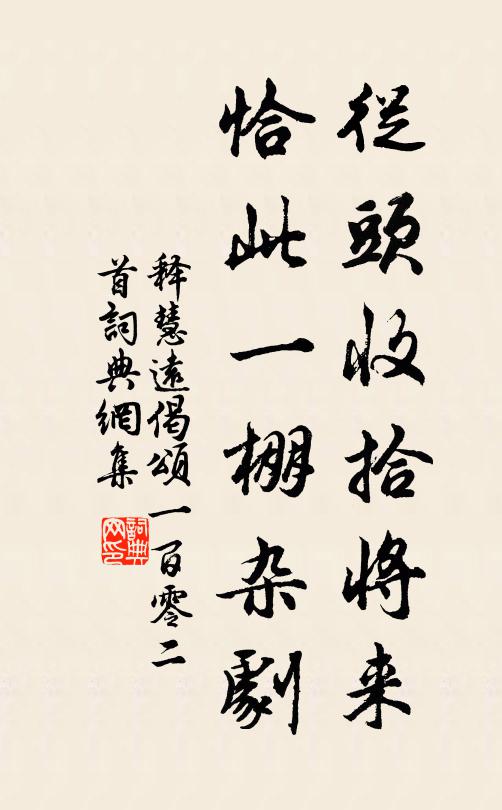 從頭收拾將来
恰此一棚杂劇
释慧遠偈頌一百零二
首詞典網集
詞典
网印